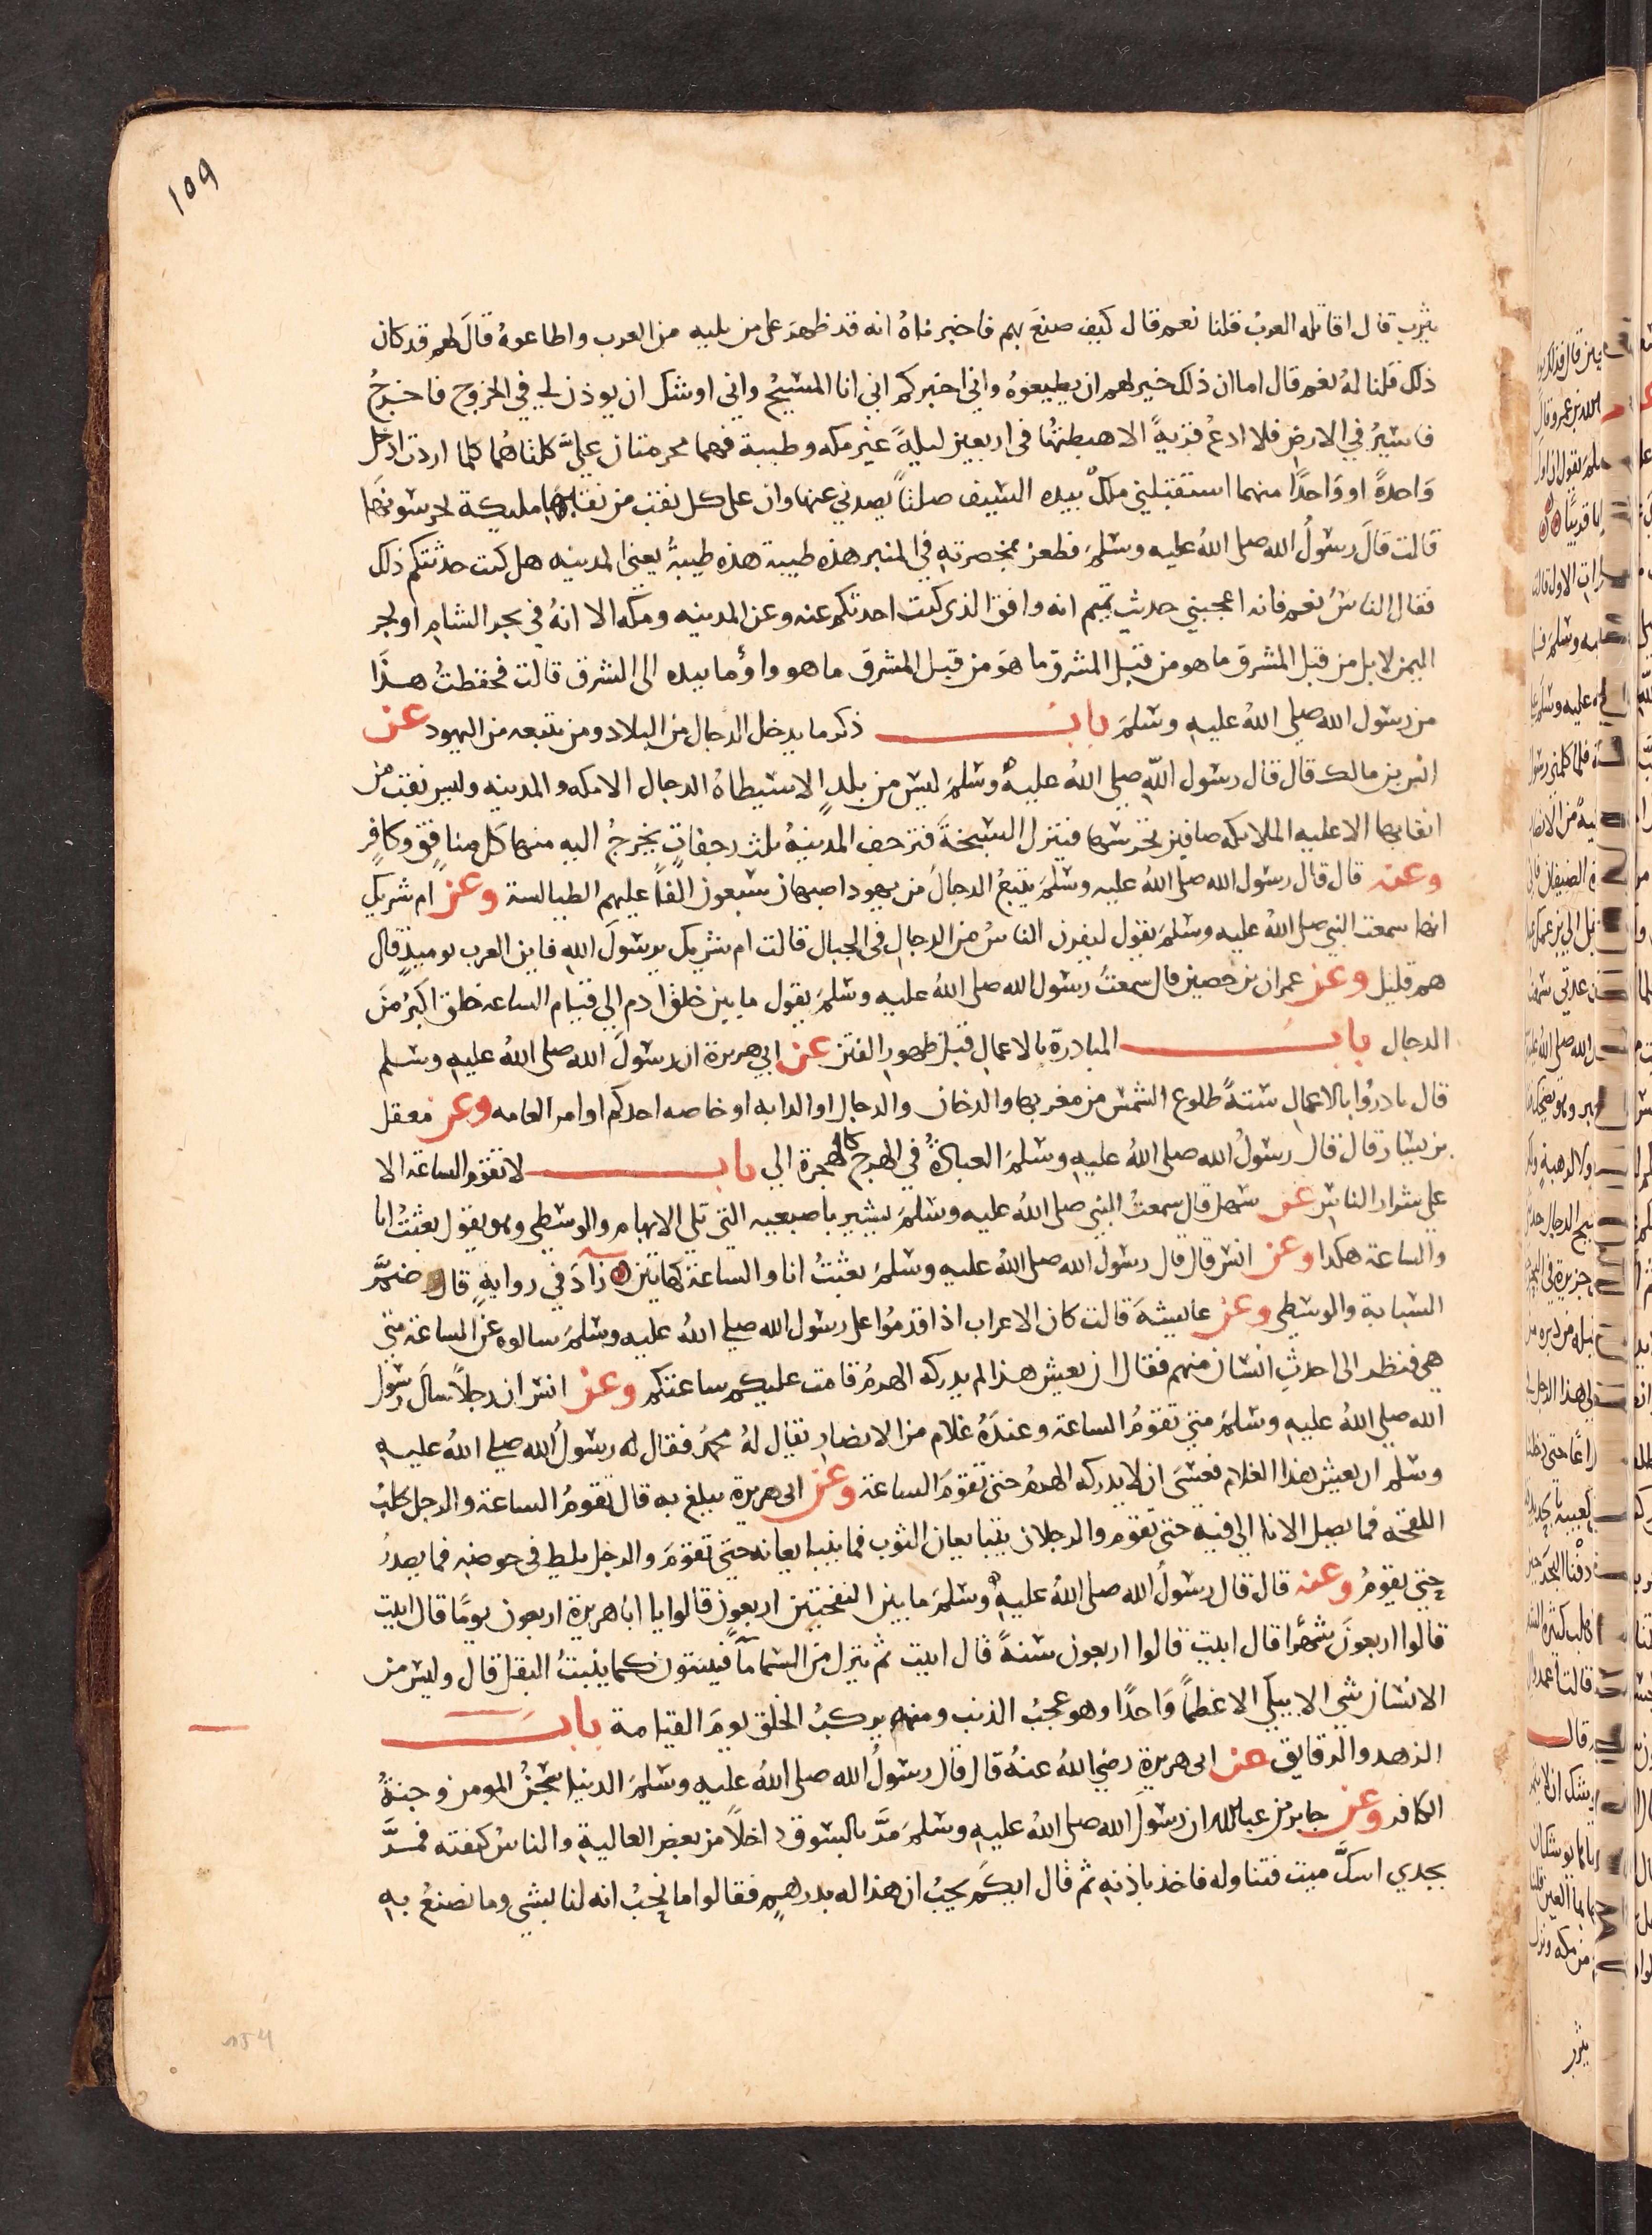 109
يثرب قال اقاتله العرب قلنا نعم قال كيف صنعَ بهم فاخبرناهُ انه قد ظهرَ على من يليه من العرب واطاعوهُ قالَ لهم قد كان
ذلك قلنا لهُ نعم قال اما ان ذلك خير لهم ان يطيعوهُ واني اخبركم اني انا المسيحُ واني اوشك ان يوذن لي في الخروج فاخرجُ
فاسيرُ في الارض فلا ادعُ قريةً الا هبطتُها في اربعين ليلةً غير مكه وطيبة فهما محرمتان عليَّ كلتاهُما كلما اردت ادخل
وَاحدةً او وَاحدًا منهما استقبلني ملكٌ بيده السَيف صلتاً يصدني عنها وان على كل نقبٍ من نقابها مليكة يحرسُونها
قالت قالَ رسُولُ الله صلى اللهُ عليه وسَلمَ فطعن بمخصرتهِ في المنبر هذه طيبة هذه طيبةُ يعني المدينه هل كنت حدثتكم ذلك
فقال الناسُ نعم فانه اعجبني حديث تميم انه وافق الذي كنت احدثكم عنه وعن المدينه ومكه الا انهُ في بحر الشام او بحر
اليمن لا بل من قبل المشرق ما هو من قبل المشرق ما هوَ من قبل المشرق ما هو واومأ بيده الى المشرق قالت فحفظتُ هذَا
من رسُول الله صلى اللهُ عليهِ وسَلمَ باب ذكر ما يدخل الدجال من البلاد ومن يتبعه من اليهود عن
انس بن مالك قال قال رسُول اللهِ صلى اللهُ عليهِ وسَلمَ ليسَ من بلدٍ الا سَيطاهُ الدجال الا مكه والمدينه وليس نقب من
انقابها الا عليه الملايكه صافين تحرسُها فينزل السَبخةَ فترجف المدينهُ ثلث رجفاتٍ يخرجُ اليه منها كل منافق وكافِر
وعنه قال قال رسُول الله صلى اللهُ عليه وسَلمَ يتبعُ الدجالَ من يهود اصبهان سَبعون الفاً عليهم الطيالسة وعن ام شريك
انها سمعت النبي صلى اللهُ عليه وسَلمَ يقول ليفرن الناسُ من الدجالِ في الجبال قالت ام شريك يرسُولَ اللهِ فاين العرب يوميذٍ قال
هم قليل وعن عمران بن حصين قال سمعتُ رسُول الله صلى اللهُ عليهِ وسَلمَ يقول ما بين خلق ادم الي قيام الساعه خلق اكبرُ منَ
الدجال باب المبادرة بالاعمالِ قبل ظهورِ الفتن عن ابي هريرة ان رسُولَ الله صلى اللهُ عليهِ وسَلم
قال بادروُا بالاعمالِ ستةً طلوع الشمس من مغربها والدخان والدجال او الدابه او خاصه احدكم او امر العامه وعن معقل
بن يسَار قال قال رسُولُ الله صلى اللهُ عليهِ وسَلمَ العبادةُ في الهرج كالهجرة الي باب لا تقوم الساعة الا
على شرار الناسِ عن سَهل قال سمعتُ النبي صلى اللهُ عليه وسَلمَ يشير باصبعيه التي تلي الابهام والوسطى وهو يقول بعثتُ انا
والساعة هكدا وعن انسَ قال قال رسُولُ الله صلى اللهُ عليهِ وسَلمَ بعثتُ انا والساعةَ كهاتين زادَ في روايةٍ قال ضمَّ
السَبابة والوسُطي وعن عايشةَ قالت كان الاعراب اذا قدمُوا على رسُول الله صلى اللهُ عليهِ وسَلمَ سَالوه عن الساعة متى
هي فنظر الى احدثِ انسَان منهم فقال ان يعيش هذا لم يدركه الهرمُ قامت عليكم ساعتكم وعن انس ان رجلاً سالَ رسُول
الله صلى اللهُ عليهِ وسَلمَ متى تقومُ الساعة وعندَهُ غلام من الانصارِ يقال لهُ محمدُ فقال له رسُولُ الله صلى اللهُ عليهِ
وسَلم ان يعيش هذا الغلام فعسَى ان لا يدركه الهرمُ حتى تقومَ الساعة وعن ابي هريرة يبلغ به قال تقومُ الساعة والرجل يحلبُ
اللقحه فما يصل الانا الي فيهِ حتى تقوم والرجلان يتبايعان الثوب فما يتبايعانه حتى تقومَ والرجل يلط في حوضه فما يصدرُ
حتى يقومُ وعنه قال قال رسُولُ الله صلى اللهُ عليهِ وسَلمَ ما بين النفختين اربعون قالوا يا اباهريرة اربعون يومًا قال ابيت
قالوا اربعونَ شهرًا قال ابيت قالوا اربعون سَنةً قال ابيت ثم ينزل من السَما مآ فينبتون كما ينبتُ البقل قال وليسَ من
الانسَان شي الا يبلي الا عَظمًا وَاحدًا وهو عجبُ الذنب ومنه يركبُ الخلق يومَ القيامة باب
الزهد والرقايق عن ابي هريرة رضي اللهُ عنهُ قال قال رسُولُ الله صلى اللهُ عليهِ وسَلمَ الدنيا سَجنُ المومن وجنةُ
الكافر وعن جابر بن عبد الله ان رسُولَ الله صلى اللهُ عليهِ وسَلمَ مرَّ بالسُوق داخلاً من بعض العاليةِ والناسُ كنفته فمرَّ
بجدي اسكَّ ميت فتناوله فاخذ باذنهِ ثم قال ايكُم يحبُ ان هذا له بدرهمٍ فقالوا ما نحبُ انه لنا بشي وما نصنعُ بهِ